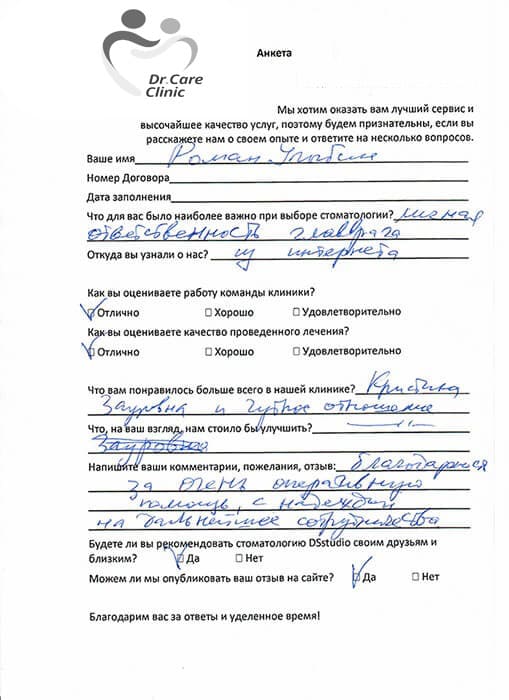 Dr.Care
Clinic
Анкета
Мы хотим оказать вам лучший сервис и
высочайшее качество услуг, поэтому будем признательны, если вы
расскажете нам о своем опыте и ответите на несколько вопросов.
Ваше имя Роман
Номер Договора
Дата заполнения
Что для вас было наиболее важно при выборе стоматологии? личная
ответственность главврача
Откуда вы узнали о нас? из интернета
Как вы оцениваете работу команды клиники?
Отлично Хорошо Удовлетворительно
Как вы оцениваете качество проведенного лечения?
Отлично Хорошо Удовлетворительно
Что вам понравилось больше всего в нашей клинике? Кристина
Зауровна и чуткое отношение
Что, на ваш взгляд, нам стоило бы улучшить?
Зауровная
Напишите ваши комментарии, пожелания, отзыв: благодарность
за очень оперативную
помощь, с надеждой
на дальнейшее сотрудничество
Будете ли вы рекомендовать стоматологию DSstudio своим друзьям и
близким? Да Нет
Можем ли мы опубликовать ваш отзыв на сайте? Да Нет
Благодарим вас за ответы и уделенное время!